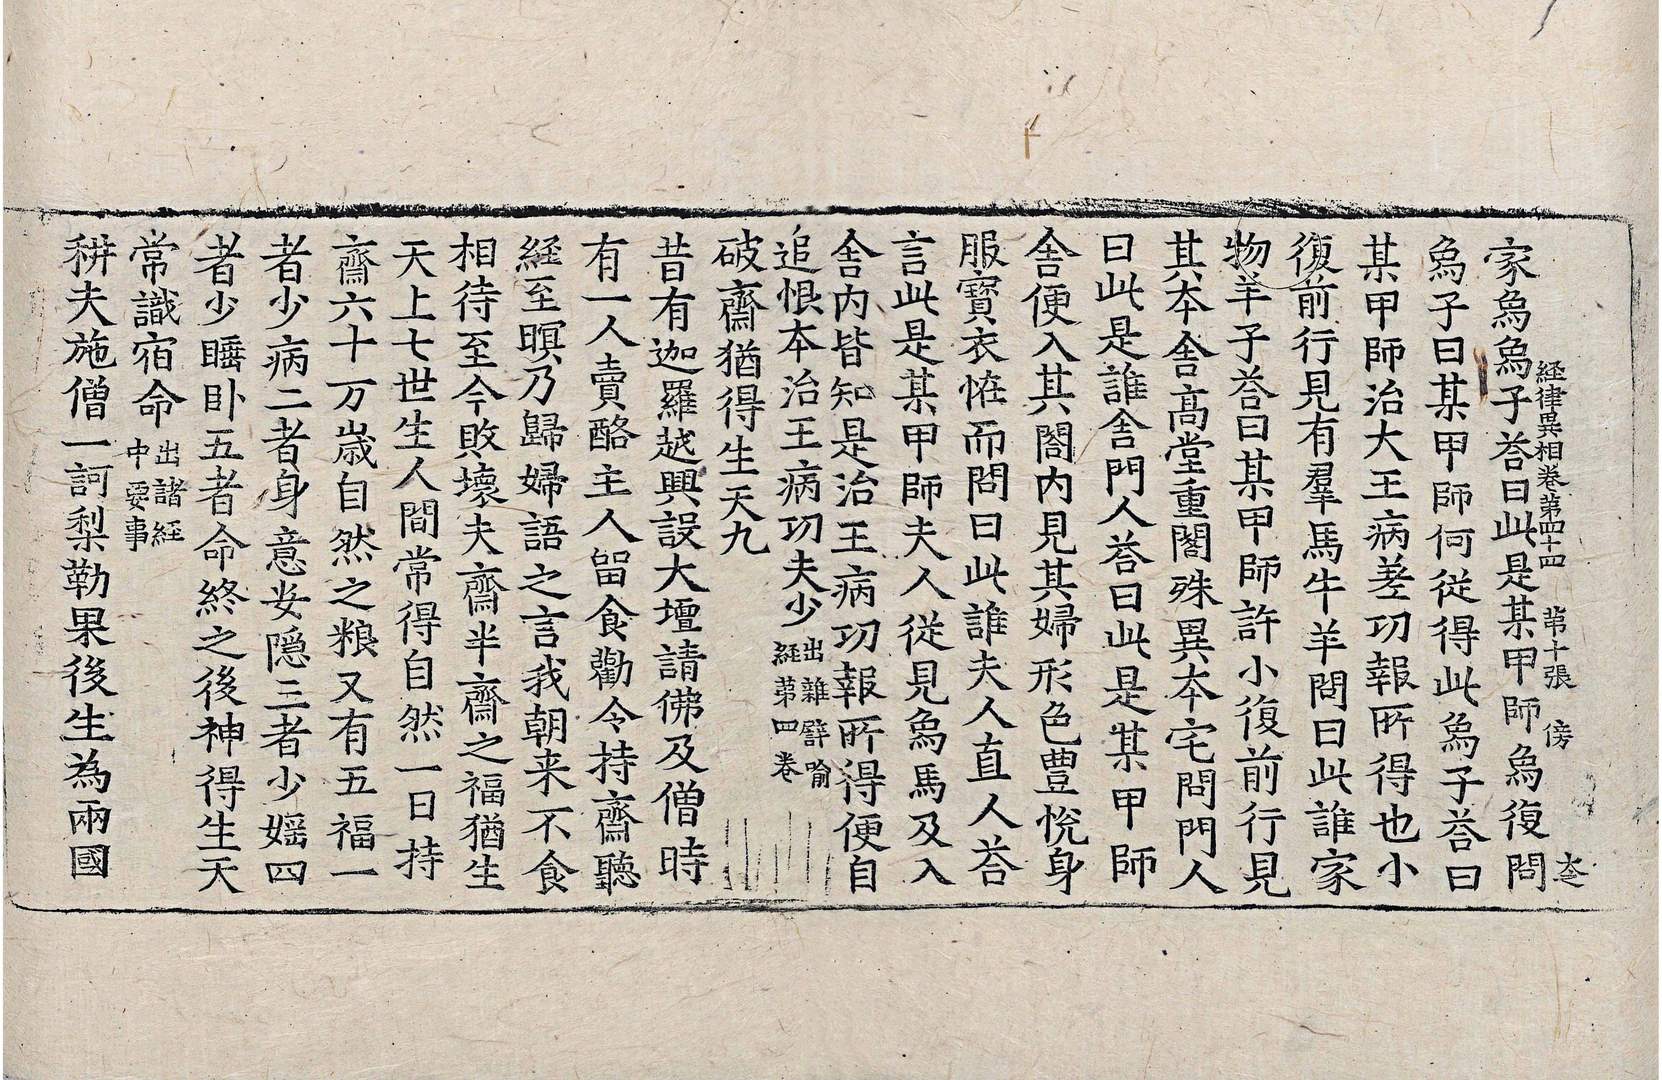 家象象子荅曰此是某甲師象復問
経律異相卷第四十四 苐十張 傍
象子曰某甲師何從得此象子荅曰
某甲師治大王病差功報所得也小
復前行見有羣馬牛羊問曰此誰家
物羊子荅曰某甲師許小復前行見
其本舍高堂重閣殊異本宅問門人
曰此是誰舍門人荅曰此是某甲師
舍便入其閤内見其婦形色豊悅身
服寶衣恠而問曰此誰夫人直人荅
言此是某甲師夫人從見象馬及入
舍内皆知是治王病功報所得便自
追恨本治王病功夫少 出雜譬喻経第四卷
破齋猶得生天九
昔有迦羅越興設大壇請佛及僧時
有一人賣酪主人留食勸令持齋聽
経至暝乃歸婦語之言我朝来不食
相待至今敗壞夫齋半齋之福猶生
天上七世生人間常得自然一日持
齋六十万歳自然之粮又有五福一
者少病二者身意安隱三者少婬四
者少睡卧五者命終之後神得生天
常識宿命 出諸経中要事
耕夫施僧一訶梨勒果後生為兩國